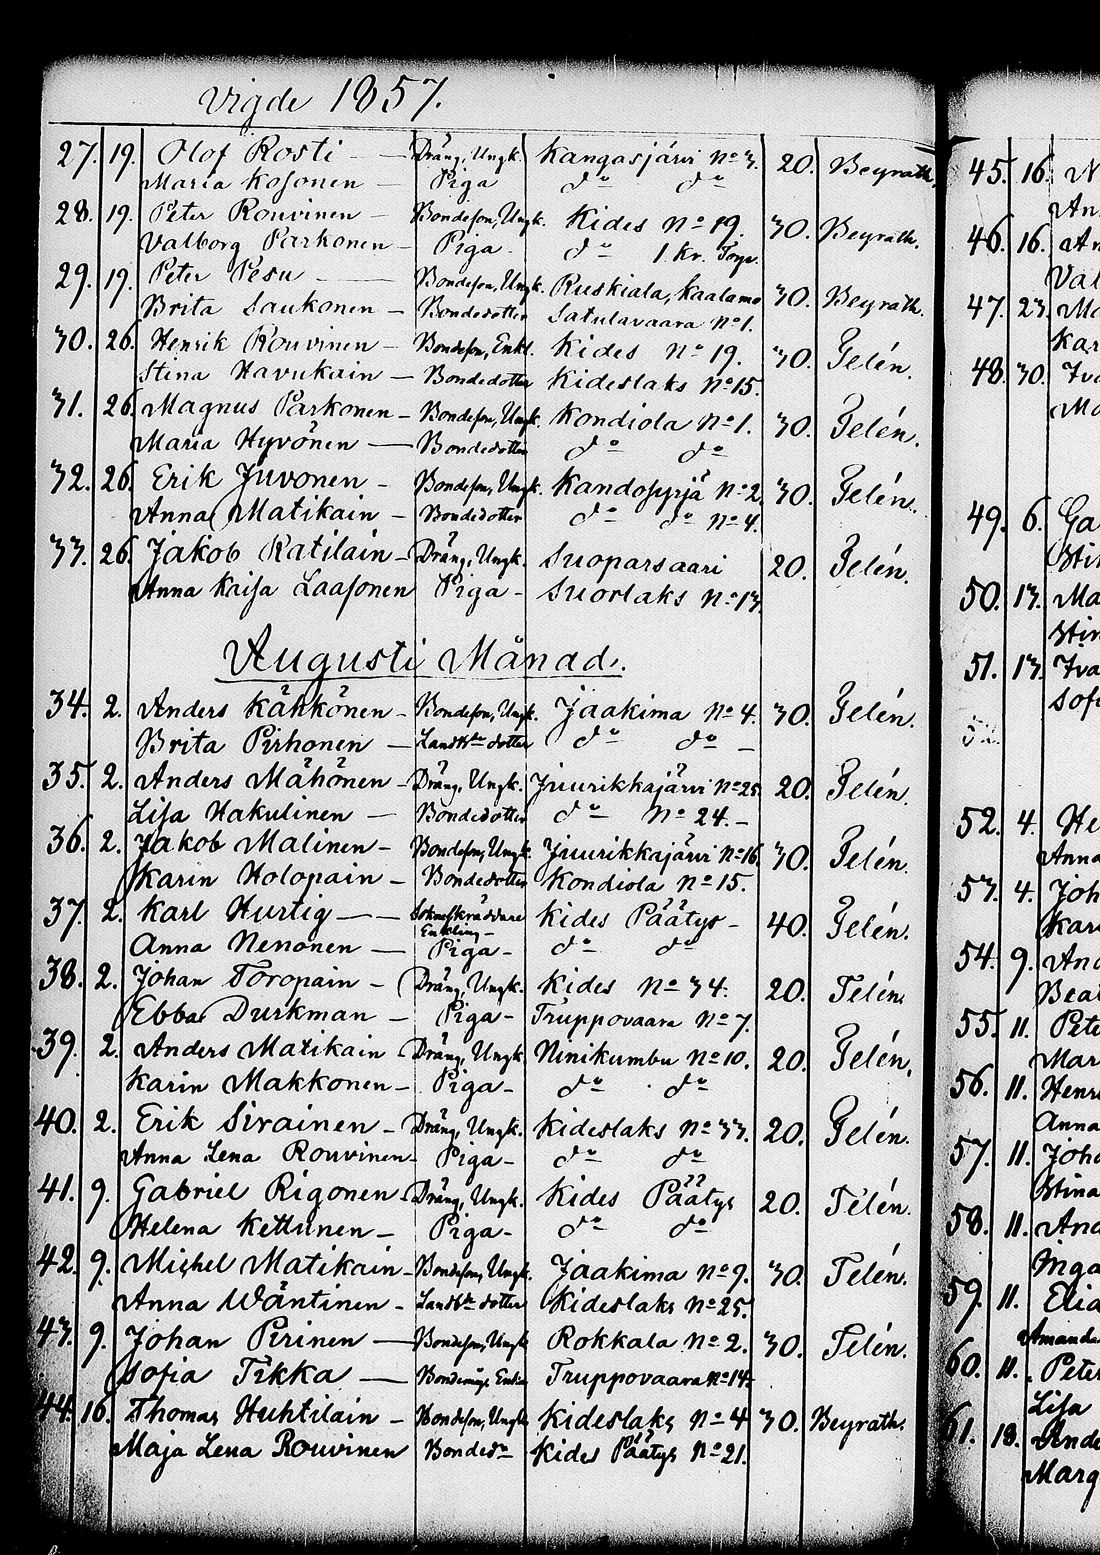 Vigde 1857.
27. 19. Olof Rosti — Dräng, Ungk. Kangasjärvi No 3. 20. Beyrath.
Maria Kosonen — Piga do do
28. 19. Peter Rouvinen — Bondeson, Ungk. Kides No 19. 30. Beyrath.
Valborg Parkonen — Piga do 1. Kr. Torp.
29. 19. Peter Pesu — Bondeson, Ungk. Ruskiala, Kaalamo 30. Beyrath.
Brita Saukonen — Bondedotter Satulavaara No 1.
30. 26. Henrik Rouvinen — Bondeson, Enkl. Kides No 19. 30. Telén.
Stina Havukain — Bondedotter Kideslaks No 15.
31. 26. Magnus Parkonen — Bondeson, Ungk. Kondiola No 1. 30. Telén.
Maria Hyvönen — Bondedotter do do
32. 26. Erik Juvonen — Bondeson, Ungk. No 2. 30. Telén.
Anna Matikain — Bondedotter do do No 4.
33. 26. Jakob Ratilain — Dräng, Ungk. Suoparsaari 20. Telén.
Anna Kaisa Laasonen Piga — Suorlaks No 13.
Augusti Månad.
34. 2. Anders Kähkönen — Bondeson, Ungk. Jaakima No 4. 30. Telén.
Brita Pirhonen — Landbde dotter do do —
35. 2. Anders Mähönen — Dräng, Ungk. Juurikkajärvi No 25. 20. Telén.
Lisa Hakulinen — Bondedotter do No 24. —
36. 2. Jakob Malinen — Bondeson, Ungk. Juurikkajärvi No 16. 30. Telén.
Karin Holopain — Bondedotter Kondiola No 15.
37. 2. Karl Hurtig — Sokneskräddare Kides Päätys — 40. Telén.
Enkling —
Anna Nenonen — Piga — do do
38. 2. Johan Toropain — Dräng, Ungk. Kides No 34. 20. Telén.
Ebba Durkman — Piga — Truppovaara No 7.
39. 2. Anders Matikain Dräng, Ungk. Niinikumbu No 10. 20. Telén.
Karin Makkonen — Piga — do do
40. 2. Erik Sirainen — Dräng, Ungk. Kideslaks No 33. 20. Telén.
Anna Lena Rouvinen — Piga — do do
41. 9. Gabriel Rigonen — Dräng, Ungk. Kides Päätys 20. Telén.
Helena Kettunen — Piga — do do
42. 9. Michel Matikain — Bondeson, Ungk. Jaakima No 9. 30. Telén.
Anna Wäntinen — Landbde dotter Kideslaks No 25.
43. 9. Johan Pirinen — Bondeson, Ungk. Rokkala No 2. 30. Telén.
Sofia Tikka — Enka Truppovaara No 14.
44. 16. Thomas Huhtilain — Bondeson, Ungk. Kideslaks No 4 30. Beyrath.
Maja Lena Rouvinen Bondedr Kides Päätys No 21.
45. 16.
An
46. 16. An
Val
47. 23. Ma
Kar
48. 30. Iva
Ma
49. 6. Ga
Stin
50. 13. Ma
Stin
51. 13. Iva
Sofi
52. 4. He
Anna
53. 4. Joh
Kar
54. 9. And
Beat
55. 11. Pete
Mar
56. 11. Henr
Anna
57. 11. Joha
Stina
58. 11. And
Inga
59. 11. Elia
Amanda
60. 11. Peter
Lisa
61. 18. Ande
Marg